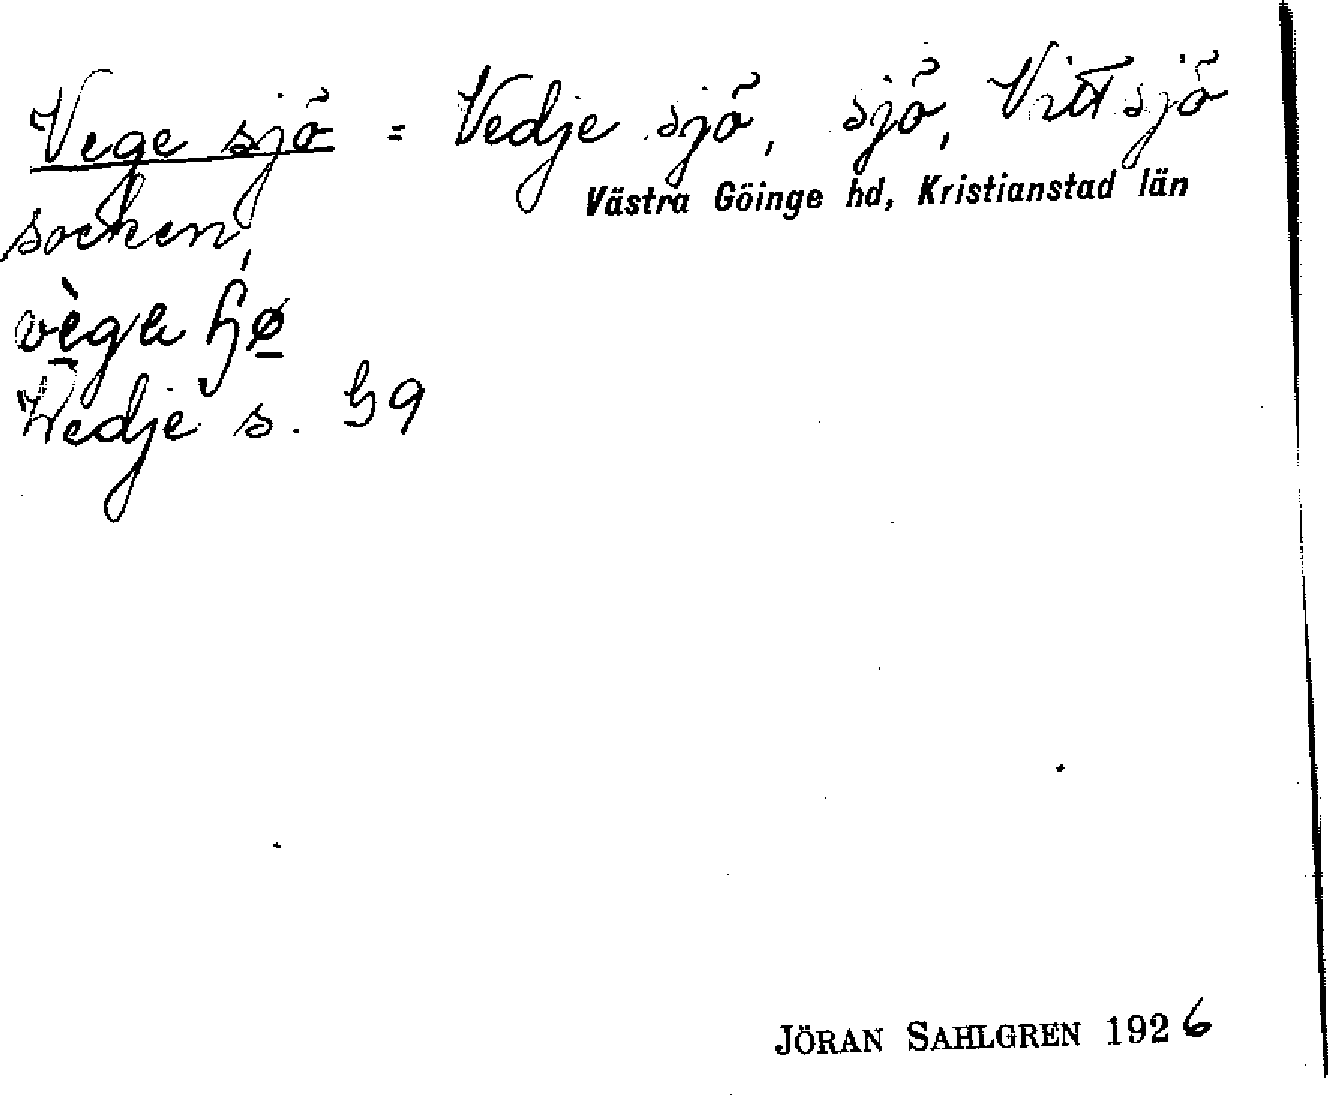 Vege sjö = Vedje sjö, sjö, Vittsjö
Västra Göinge hd, Kristianstad län
socken,
Vedje s.
JÖRAN SAHLGREN 1926